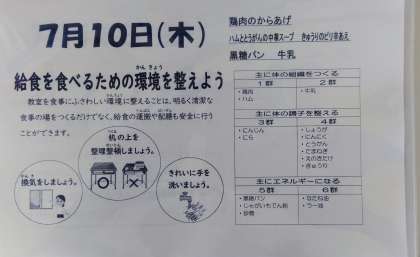 7月10日(木)
鶏肉のからあげ
ハムととうがんの中華スープ きゅうりのピリ辛あえ
黒糖パン 牛乳
かん きょう
給食を食べるための環境を整えよう
教室を食事にふさわしい環境に整えることは、明るく清潔な
食事の場をつくるだけでなく、給食の運搬や配膳も安全に行う
ことができます。
換気をしましょう。
机の上を
整理整頓しましょう。
きれいに手を
洗いましょう。
主に体の組織をつくる
1群 2群
・鶏肉 ・牛乳
・ハム
主に体の調子を整える
3群 4群
・にんじん ・しょうが
・にら ・にんにく
・とうがん
・たまねぎ
・えのきたけ
・きゅうり
主にエネルギーになる
5群 6群
・黒糖パン ・なたね油
・じゃがいもでん粉 ・ラー油
・砂糖